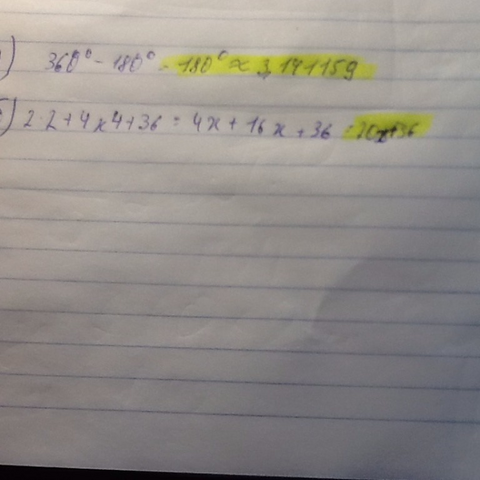 ) 360° - 180° = 180° ≈ 3,141159
) 2·2+4x4+36 = 4x + 16x + 36 = 20x+36